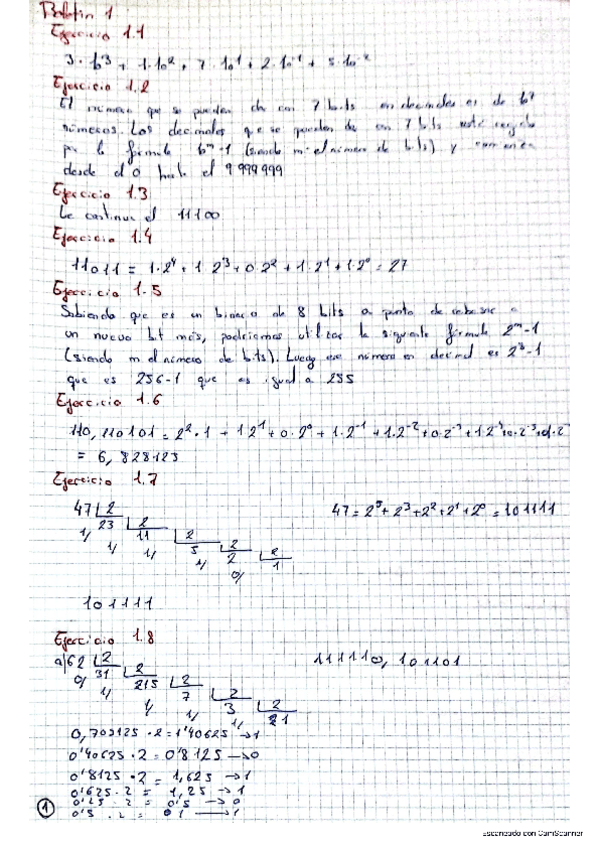 Boletín 1
Ejercicio 1.1
3·b³ + 1·10² + 7·10¹ + 2·10⁻¹ + 5·10⁻²
Ejercicio 1.2
El número que se pueden de con 7 bits en decimales es de b⁷
números. Los decimales que se pueden de con 7 bits está
por la fórmula bᵐ-1 (siendo m el número de bits) y
desde el 0 hasta el 9 999 999
Ejercicio 1.3
Le continua el 11100
Ejercicio 1.4
11011 = 1·2⁴ + 1·2³ + 0·2² + 1·2¹ + 1·2⁰ = 27
Ejercicio 1.5
Sabiendo que es un binario de 8 bits a punto de a
un nuevo bit más, podríamos utilizar la siguiente fórmula 2ᵐ-1
(siendo m el número de bits). Luego ese número en decimal es 2⁸-1
que es 256-1 que es igual a 255
Ejercicio 1.6
110,110101 = 2²·1 + 1·2¹ + 0·2⁰ + 1·2⁻¹ + 1·2⁻² + 0·2⁻³ + 1·2⁻⁴
= 6,828125
Ejercicio 1.7
47 2 47 = 2⁵ + 2³ + 2² + 2¹ + 2⁰ = 101111
1/ 23 2
1/ 11 2
1/ 5 2
1/ 2 2
0/ 1
101111
Ejercicio 1.8
a) 62 2 111110,101101
0/ 31 2
1/ 2
1/ 7 2
1/ 3 2
1/
0,703125 · 2 = 1'40625 → 1
0'40625 · 2 = 0'8125 → 0
0'8125 · 2 = 1,625 → 1
0'625 · 2 = 1,25 → 1
0'25 · 2 = 0'5 → 0
0'5 · 2 = → 1
1
Escaneado con CamScanner